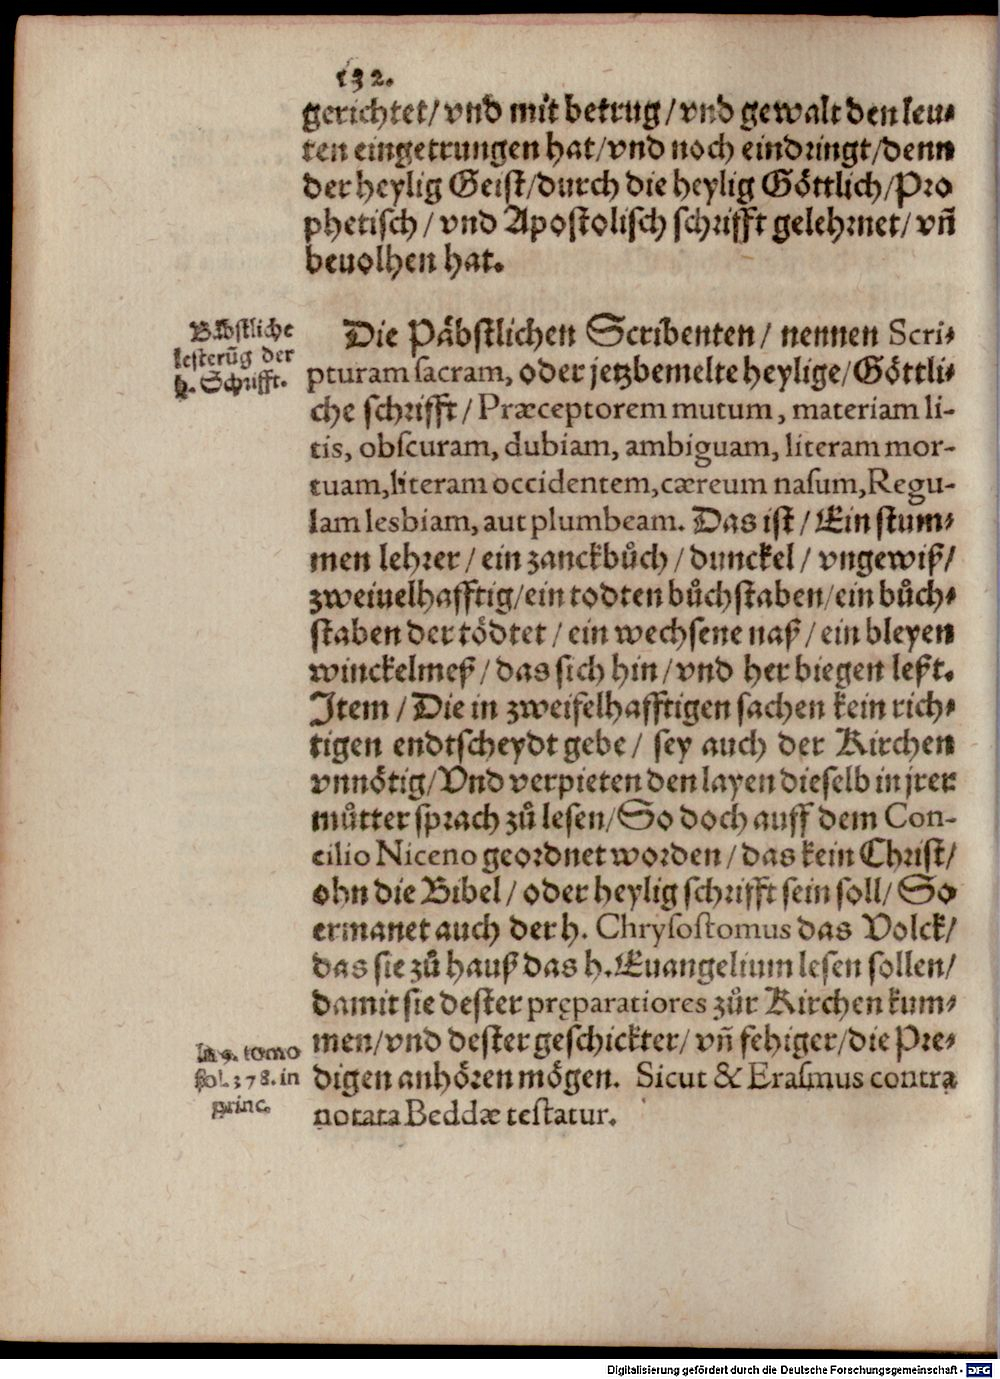 132.
gerichtet/ vnd mit betrug/ vnd gewalt den leu⸗
ten eingetrungen hat/ vnd noch eindringt/ denn
der heylig Geist/ durch die heylig Göttlich/ Pro
phetisch/ vnd Apostolisch schrifft gelehrnet/ vñ
beuolhen hat.
Bäbstliche
lesterũg der
h. Schrifft.
Die Päbstlichen Scribenten/ nennen Scri⸗
pturam sacram, oder jetzbemelte heylige/ Göttli⸗
che schrifft/ Præceptorem mutum, materiam li-
tis, obscuram, dubiam, ambiguam, literam mor-
tuam, literam occidentem, cæreum nasum, Regu-
lam lesbiam, aut plumbeam. Das ist/ Ein stum⸗
men lehrer/ ein zanckbůch/ dunckel/ vngewiß/
zweiuelhafftig/ ein todten bůchstaben/ ein bůch⸗
staben der tödtet/ ein wechsene naß/ ein bleyen
winckelmeß/ das sich hin/ vnd her biegen leßt.
Item/ Die in zweifelhafftigen sachen kein rich⸗
tigen endtscheydt gebe/ sey auch der Kirchen
vnnötig/ Vnd verpieten den layen dieselb in jrer
můtter sprach zů lesen/ So doch auff dem Con-
cilio Niceno geordnet worden/ das kein Christ/
ohn die Bibel/ oder heylig schrifft sein soll/ So
ermanet auch der h. Chrysostomus das Volck/
das sie zů hauß das h. Euangelium lesen sollen/
damit sie dester pręparatiores zůr Kirchen kum⸗
men/ vnd dester geschickter/ vñ fehiger/ die Pre⸗
digen anhören mögen. Sicut & Erasmus contra
notata Beddæ testatur.
In 9. tomo
fol. 378. in
princ.
Digitalisierung gefördert durch die Deutsche Forschungsgemeinschaft - DFG